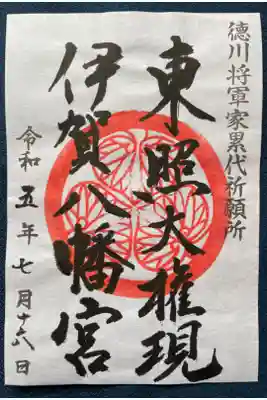 徳川将軍家累代祈願所
東照大権現
伊賀八幡宮
令和五年七月十八日